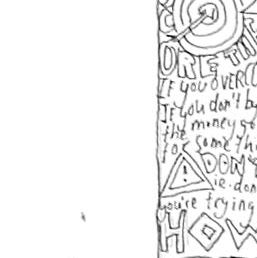 C
DRE TH
IF you OVER
If you don't b
the money
some thi
to
! DON
ie. don
you're trying
HOW